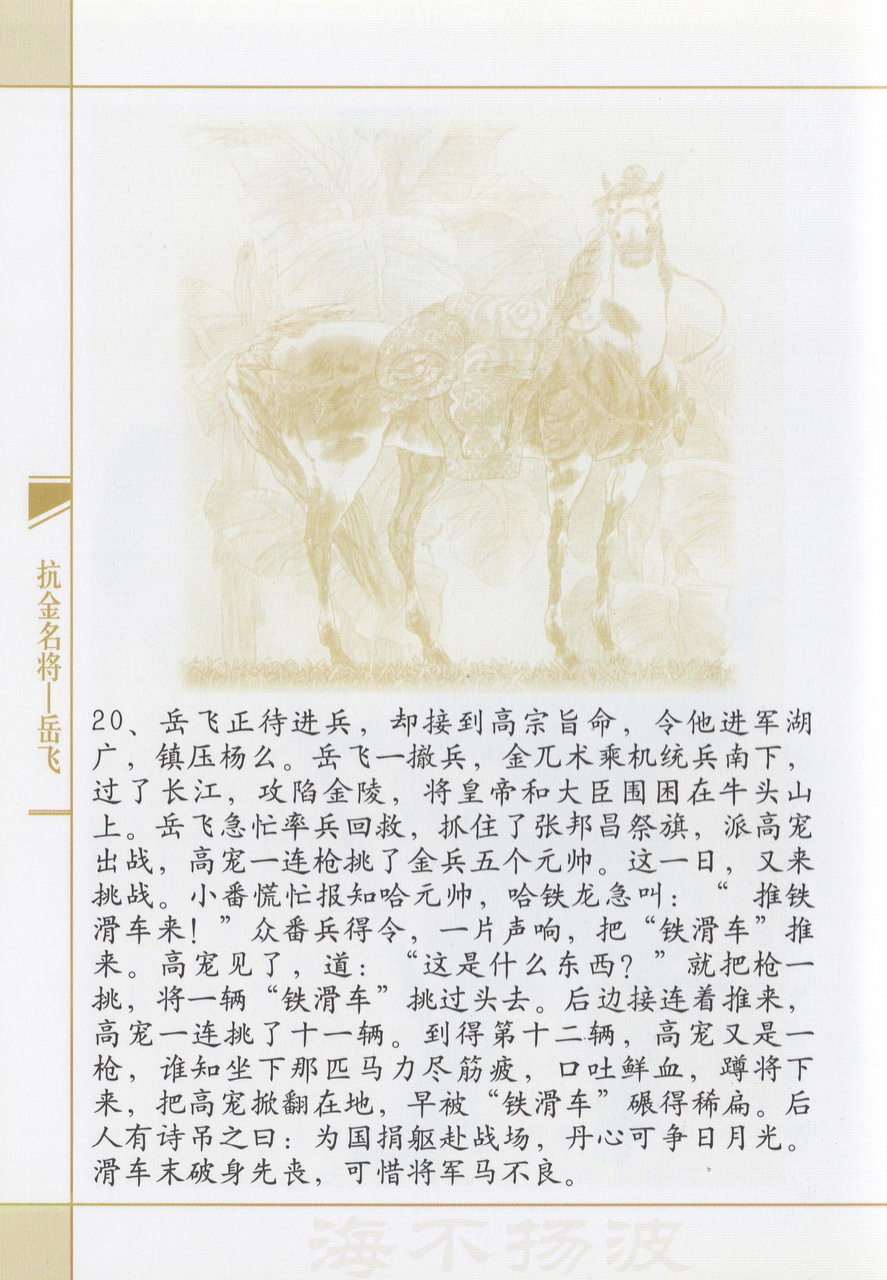 抗金名将—岳飞
20、岳飞正待进兵，却接到高宗旨命，令他进军湖
广，镇压杨么。岳飞一撤兵，金兀术乘机统兵南下，
过了长江，攻陷金陵，将皇帝和大臣围困在牛头山
上。岳飞急忙率兵回救，抓住了张邦昌祭旗，派高宠
出战，高宠一连枪挑了金兵五个元帅。这一日，又来
挑战。小番慌忙报知哈元帅，哈铁龙急叫：“ 推铁
滑车来！”众番兵得令，一片声响，把“铁滑车”推
来。高宠见了，道：“这是什么东西？”就把枪一
挑，将一辆“铁滑车”挑过头去。后边接连着推来，
高宠一连挑了十一辆。到得第十二辆，高宠又是一
枪，谁知坐下那匹马力尽筋疲，口吐鲜血，蹲将下
来，把高宠掀翻在地，早被“铁滑车”碾得稀扁。后
人有诗吊之曰：为国捐躯赴战场，丹心可争日月光。
滑车末破身先丧，可惜将军马不良。
海不扬波